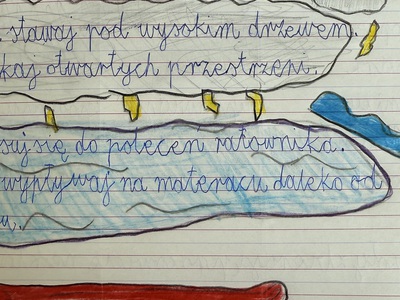 . stawaj pod wysokim drzewem.
kaj otwartych przestrzeni.
suj się do poleceń ratownika.
wypływaj na materacu daleko od
u.